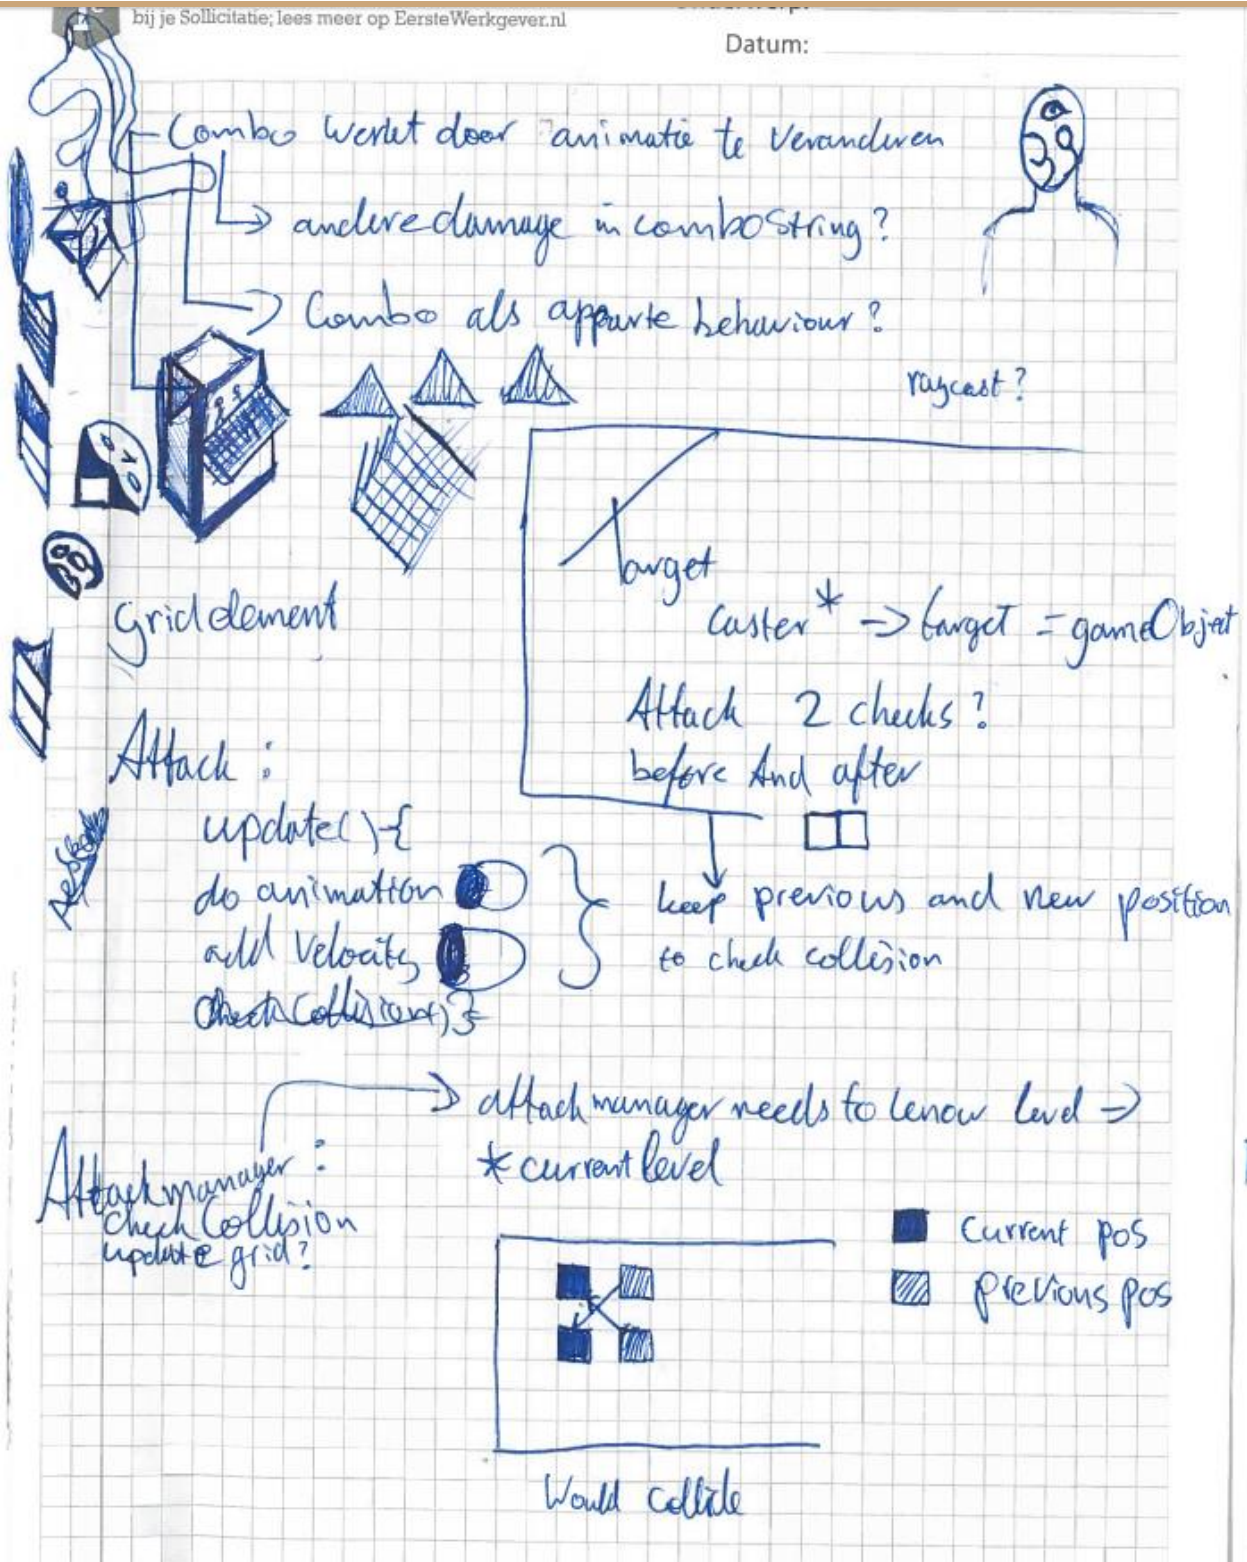 bij je Sollicitatie; lees meer op EersteWerkgever.nl
Datum:
Combo werkt door animatie te veranderen
andere damage in combostring?
Combo als apparte behaviour?
raycast?
target
Caster* -> target = gameObject
Grid element
Attack 2 checks?
before And after
Attack :
update() {
do animation
add velocity
checkCollision() }
keep previous and new position
to check collision
attackmanager needs to know level =>
* currentlevel
Attackmanager :
checkCollision
update grid?
Current pos
previous pos
Would collide